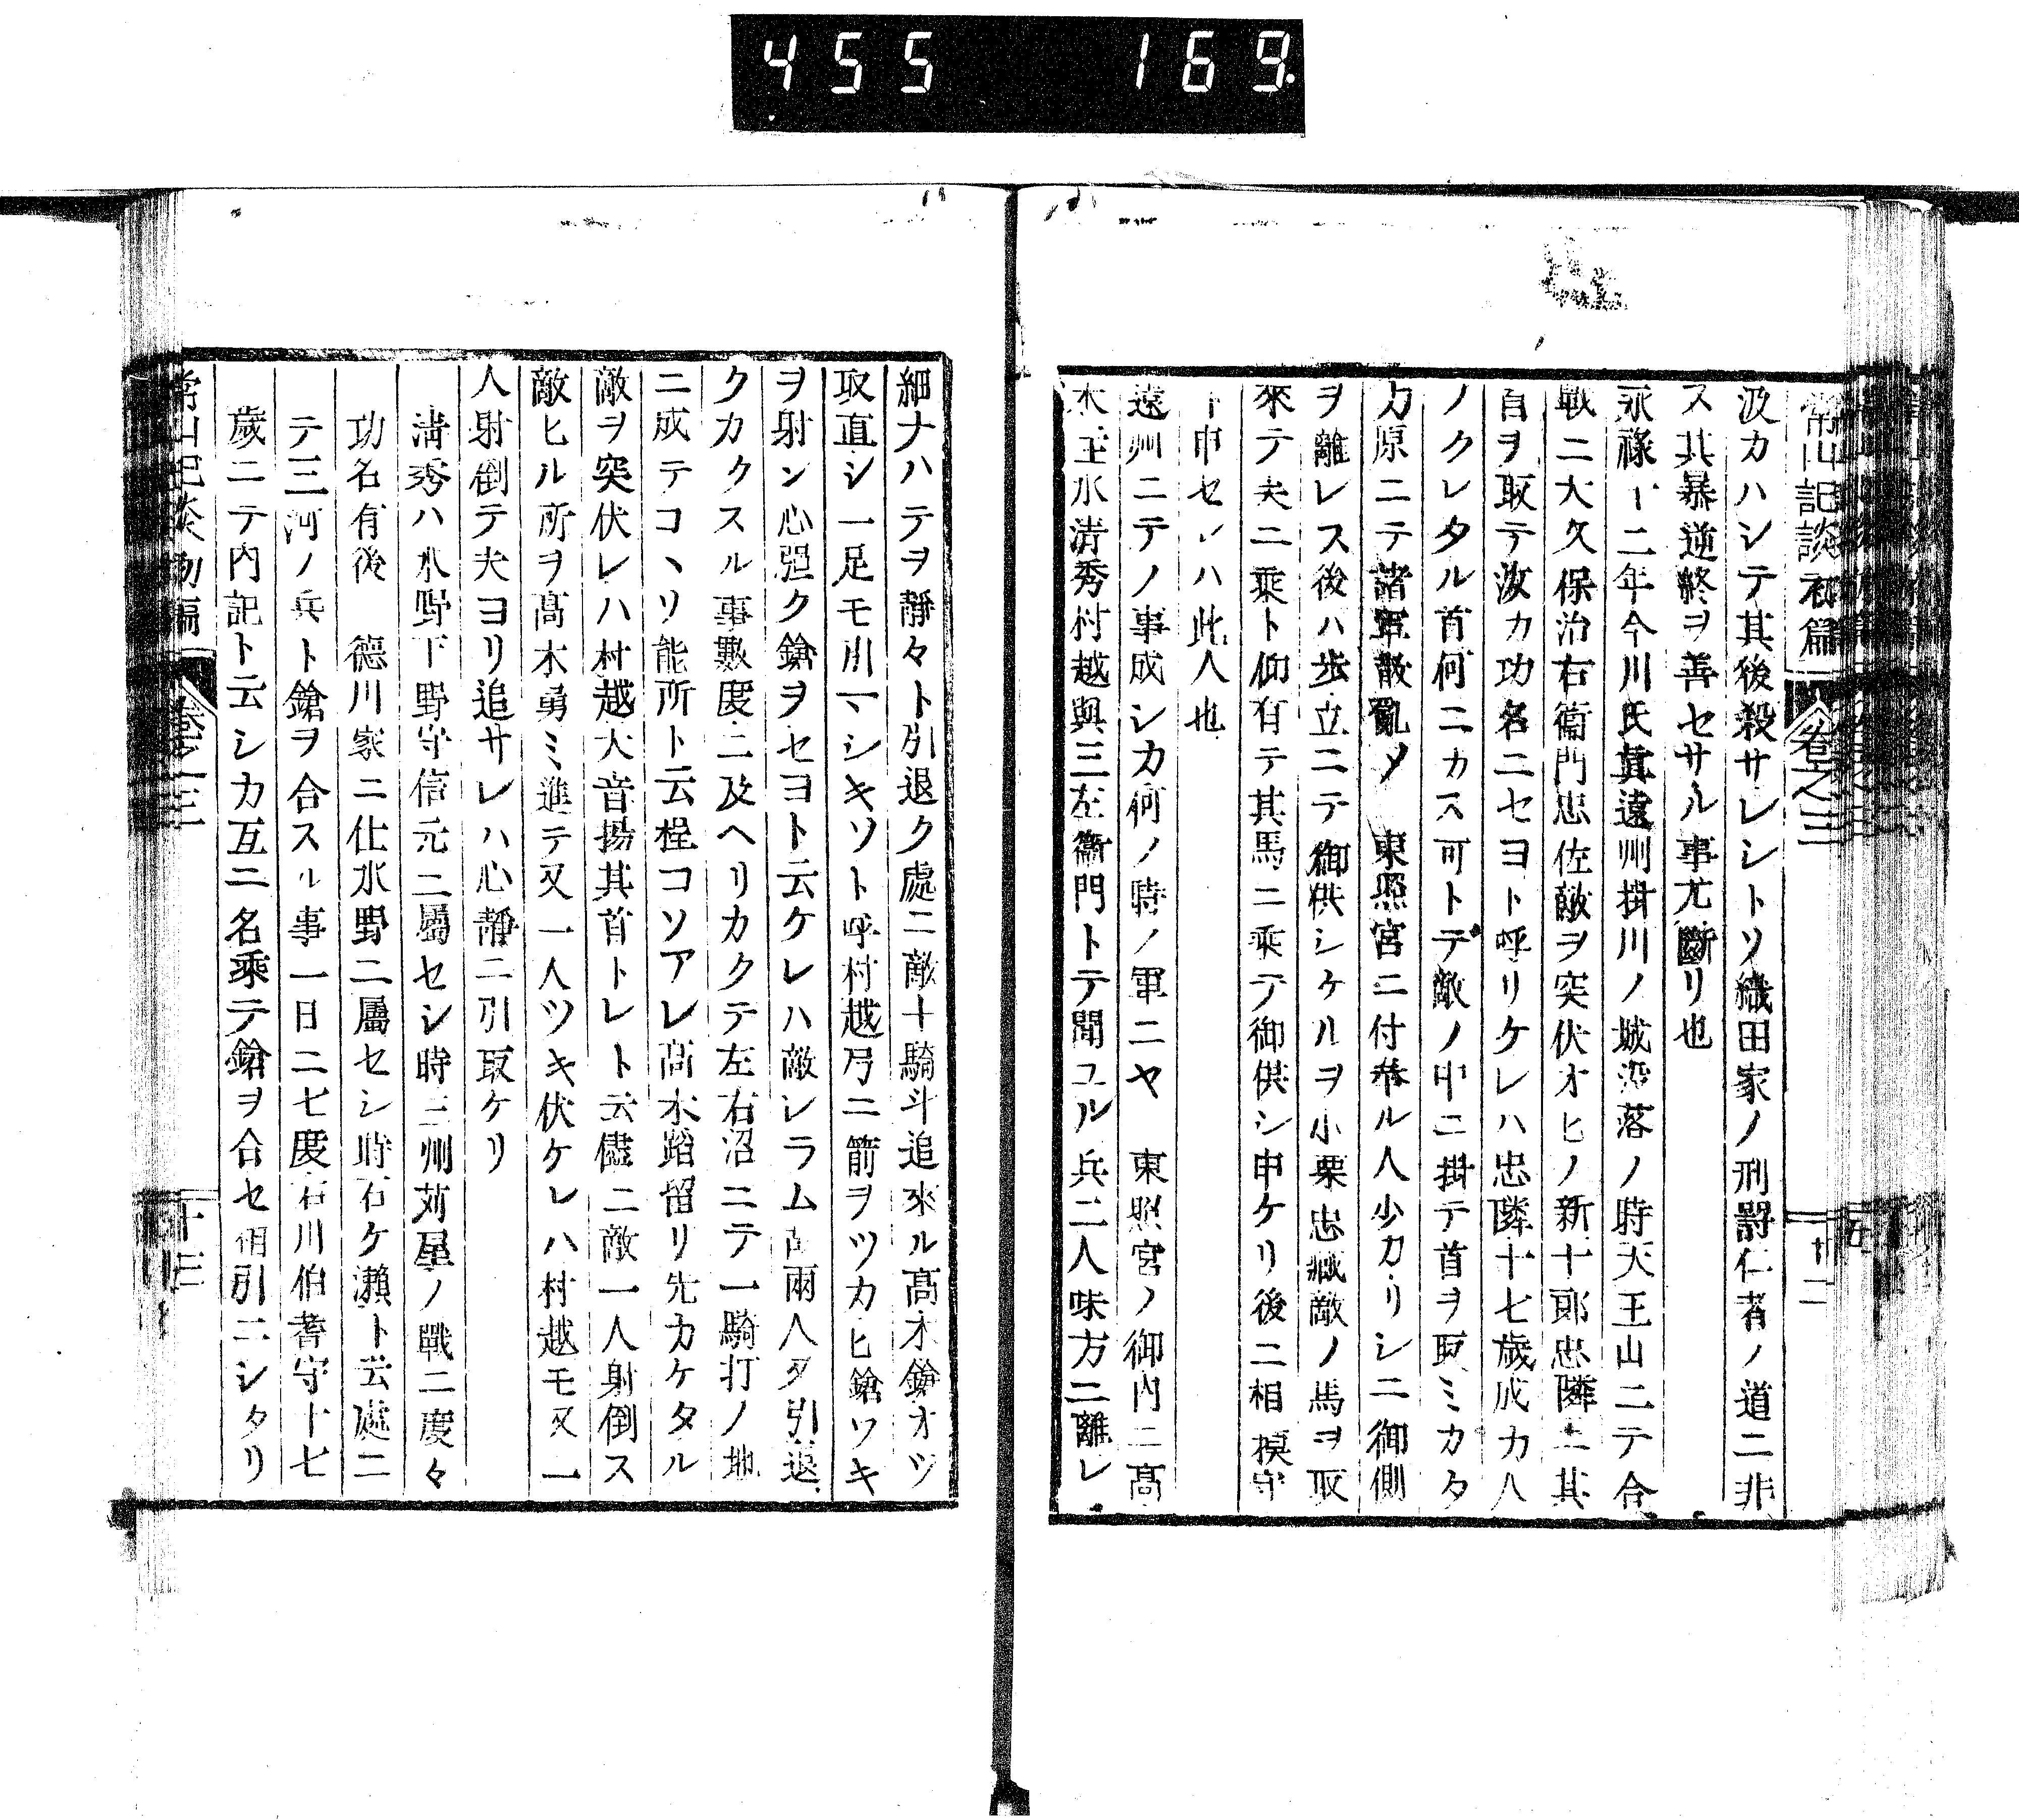 455 169
常山記談初篇 卷之三 十二
汲カハシテ其後殺サレシトソ織田家ノ刑罸仁者ノ道ニ非
ス其暴逆終ヲ善セサル事尤斷リ也
永祿十二年今川氏眞遠州掛川ノ城沒落ノ時天王山ニテ合
戰ニ大久保治右衞門忠佐敵ヲ突伏オヒノ新十郎忠隣ニ其
首ヲ取テ汝カ功名ニセヨト呼リケレハ忠隣十七歳成カ人
ノクレタル首何ニカス可トテ敵ノ中ニ掛テ首ヲ取ミカタ
カ原ニテ諸軍散亂ソ 東照宮ニ付奉ル人少カリシニ御側
ヲ離レス後ハ歩立ニテ御供シケルヲ小栗忠藏敵ノ馬ヲ取
來テ夫ニ乘ト仰有テ其馬ニ乘テ御供シ申ケリ後ニ相摸守
ト申セシハ此人也
遠州ニテノ事成シカ何ノ時ノ軍ニヤ 東照宮ノ御内ニ髙
木主水淸秀村越與三左衞門トテ聞ユル兵二人味方ニ離レ
細ナハテヲ靜々ト引退ク處ニ敵十騎斗追來ル髙木鎗オツ
取直シ一足モ引マシキソト呼村越弓ニ箭ヲツカヒ鎗ワキ
ヲ射ン心强ク鎗ヲセヨト云ケレハ敵シラム両人又引退
クカクスル事數度ニ及ヘリカクテ左右沼ニテ一騎打ノ地
ニ成テコヽソ能所ト云程コソアレ髙木蹈留リ先カケタル
敵ヲ突伏レハ村越大音揚其首トレト云儘ニ敵一人射倒ス
敵ヒル所ヲ髙木勇ミ進テ又一人ツキ伏ケレハ村越モ又一
人射倒テ夫ヨリ追サレハ心靜ニ引取ケリ
淸秀ハ水野下野守信元ニ屬セシ時三州苅屋ノ戰ニ度々
功名有後 德川家ニ仕水野ニ屬セシ時石ケ瀬ト云處ニ
テ三河ノ兵ト鎗ヲ合スル事一日ニ七度石川伯耆守十七
歳ニテ内記ト云シカ互ニ名乘テ鎗ヲ合セ相引ニシタリ
常山記談初編 卷之三 十三